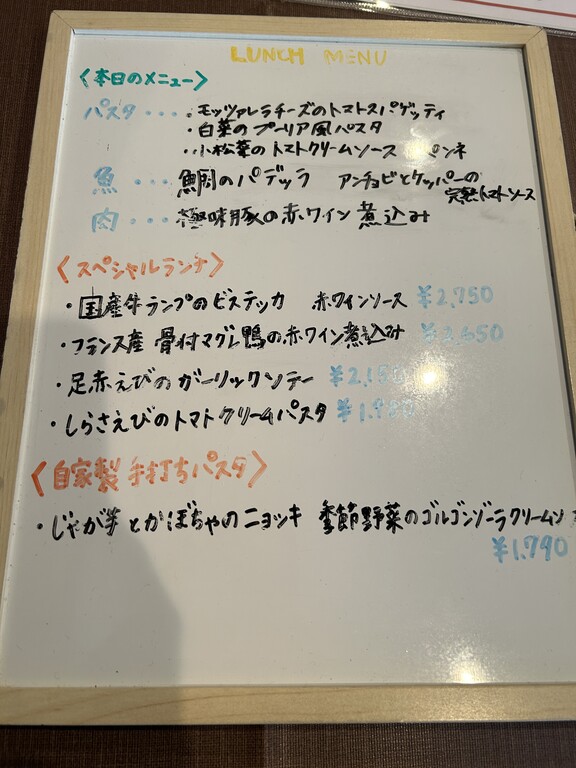 LUNCH MENU
〈本日のメニュー〉
パスタ ・・・・ ・モッツァレラチーズのトマトスパゲッティ
・白菜のプーリア風パスタ
・小松菜のトマトクリームソース ペンネ
魚 ・・・ 鯛のパデッラ アンチョビとケッパーの
完熟トマトソース
肉 ・・・ 極味豚の赤ワイン煮込み
〈スペシャルランチ〉
・国産牛ランプのビステッカ 赤ワインソース ¥2,750
・フランス産 骨付マグレ鴨の赤ワイン煮込み ¥2,650
・足赤えびのガーリックソテー
・しらさえびのトマトクリームパスタ
〈自家製 手打ちパスタ〉
・じゃが芋とかぼちゃのニョッキ 季節野菜のゴルゴンゾーラクリームソ
¥1,790